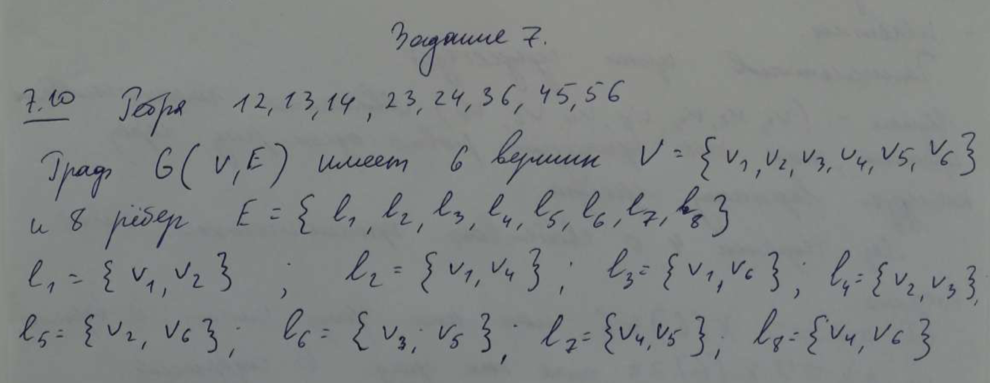 Задание 7.
7.10 Ребра 12, 13, 14, 23, 24, 36, 45, 56
Граф G(V, E) имеет 6 вершин V = {v1, v2, v3, v4, v5, v6}
и 8 рёбер E = {l1, l2, l3, l4, l5, l6, l7, l8}
l1 = {v1, v2}; l2 = {v1, v4}; l3 = {v1, v6}; l4 = {v2, v3};
l5 = {v2, v6}; l6 = {v3; v5}; l7 = {v4, v5}; l8 = {v4, v6}